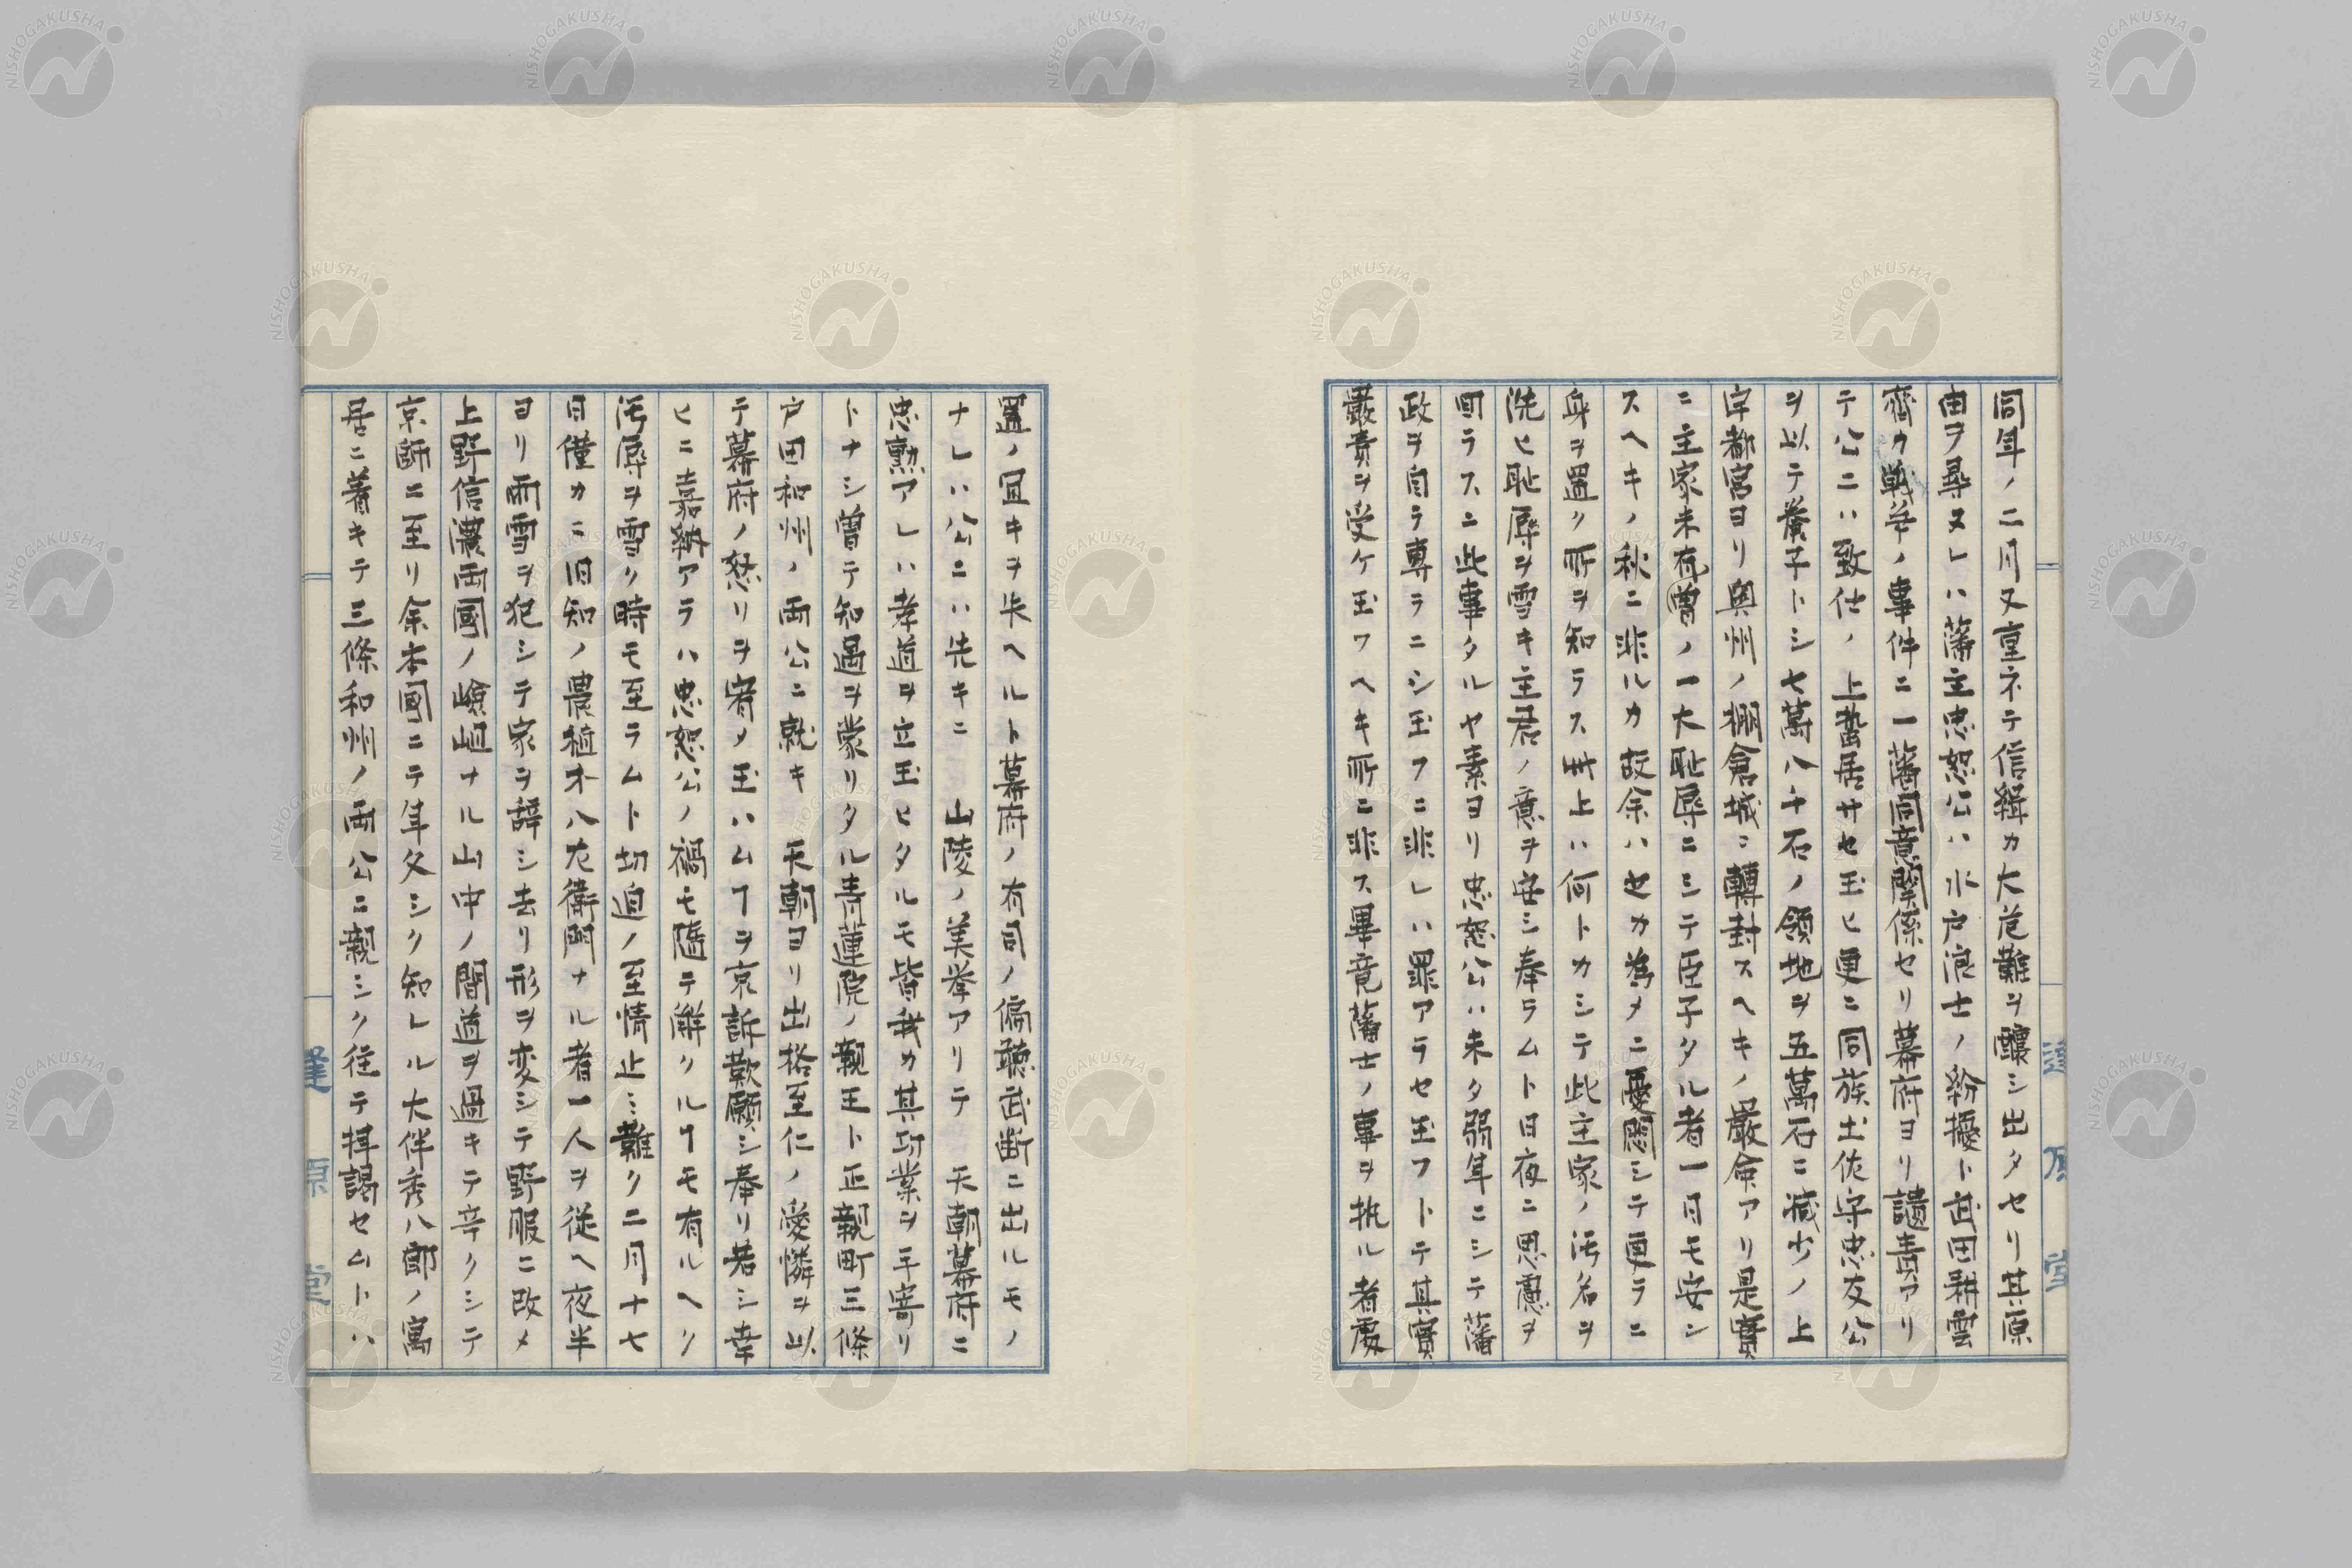 同年ノ二月又重ネテ信緝カ大危難ヲ釀シ出タセリ其原
由ヲ尋ヌレハ藩主忠恕公ハ水戸浪士ノ紛擾ト武田耕雲
齋カ戦爭ノ事件ニ一藩同意關係セリ幕府ヨリ譴責アリ
テ公ニハ致仕ノ上蟄居サセ玉ヒ更ニ同族土佐守忠友公
ヲ以テ養子トシ七萬八千石ノ領地ヲ五萬石ニ減少ノ上
宇都宮ヨリ奥州ノ棚倉城ニ轉封スヘキノ嚴命アリ是實
ニ主家未有曽ノ一大恥辱ニシテ臣子タル者一日モ安ン
スヘキノ秋ニ非ルカ故余ハ世カ為メニ憂悶シテ更ラニ
身ヲ置ク所ヲ知ラス此上ハ何トカシテ此主家ノ汚名ヲ
洗ヒ恥辱ヲ雪キ主君ノ意ヲ安シ奉ラムト日夜ニ思慮ヲ
回ラスニ此事タルヤ素ヨリ忠恕公ハ未タ弱年ニシテ藩
政ヲ自ラ専ラニシ玉フニ非レハ罪アラセ玉フトテ其實
嚴責ヲ受ケ玉フヘキ所ニ非ス畢竟藩士ノ事ヲ執ル者處
置ノ宜キヲ失ヘルト幕府ノ有司ノ偏聴武断ニ出ルモノ
ナレハ公ニハ先キニ 山陵ノ美挙アリテ 天朝幕府ニ
忠勲アレハ孝道ヲ立玉ヒタルモ皆我カ其功業ヲ年寄リ
トナシ曽テ知遇ヲ蒙リタル青蓮院ノ親王ト正親町三條
戸田和州ノ両公ニ就キ 天朝ヨリ出格至仁ノ愛憐ヲ以
テ幕府ノ怒リヲ宥メ玉ハムヿヲ京訴歎願シ奉リ若シ幸
ヒニ嘉納アラハ忠恕公ノ禍モ隨テ解クルヿモ有ルヘク
汚辱ヲ雪ク時モ至ラムト切迫ノ至情止ミ難ク二月十七
日僅カニ旧知ノ農植木八左衛門ナル者一人ヲ従ヘ夜半
ヨリ雨雪ヲ犯シテ家ヲ辞シ去リ形ヲ変シテ野服ニ改メ
上野信濃両國ノ嶮岨ナル山中ノ間道ヲ過キテ辛クシテ
京師ニ至リ余本國ニテ年久シク知レル大伴秀八郎ノ寓
居ニ着キテ三條和州ノ両公ニ親シク往テ拝謁セムトハ